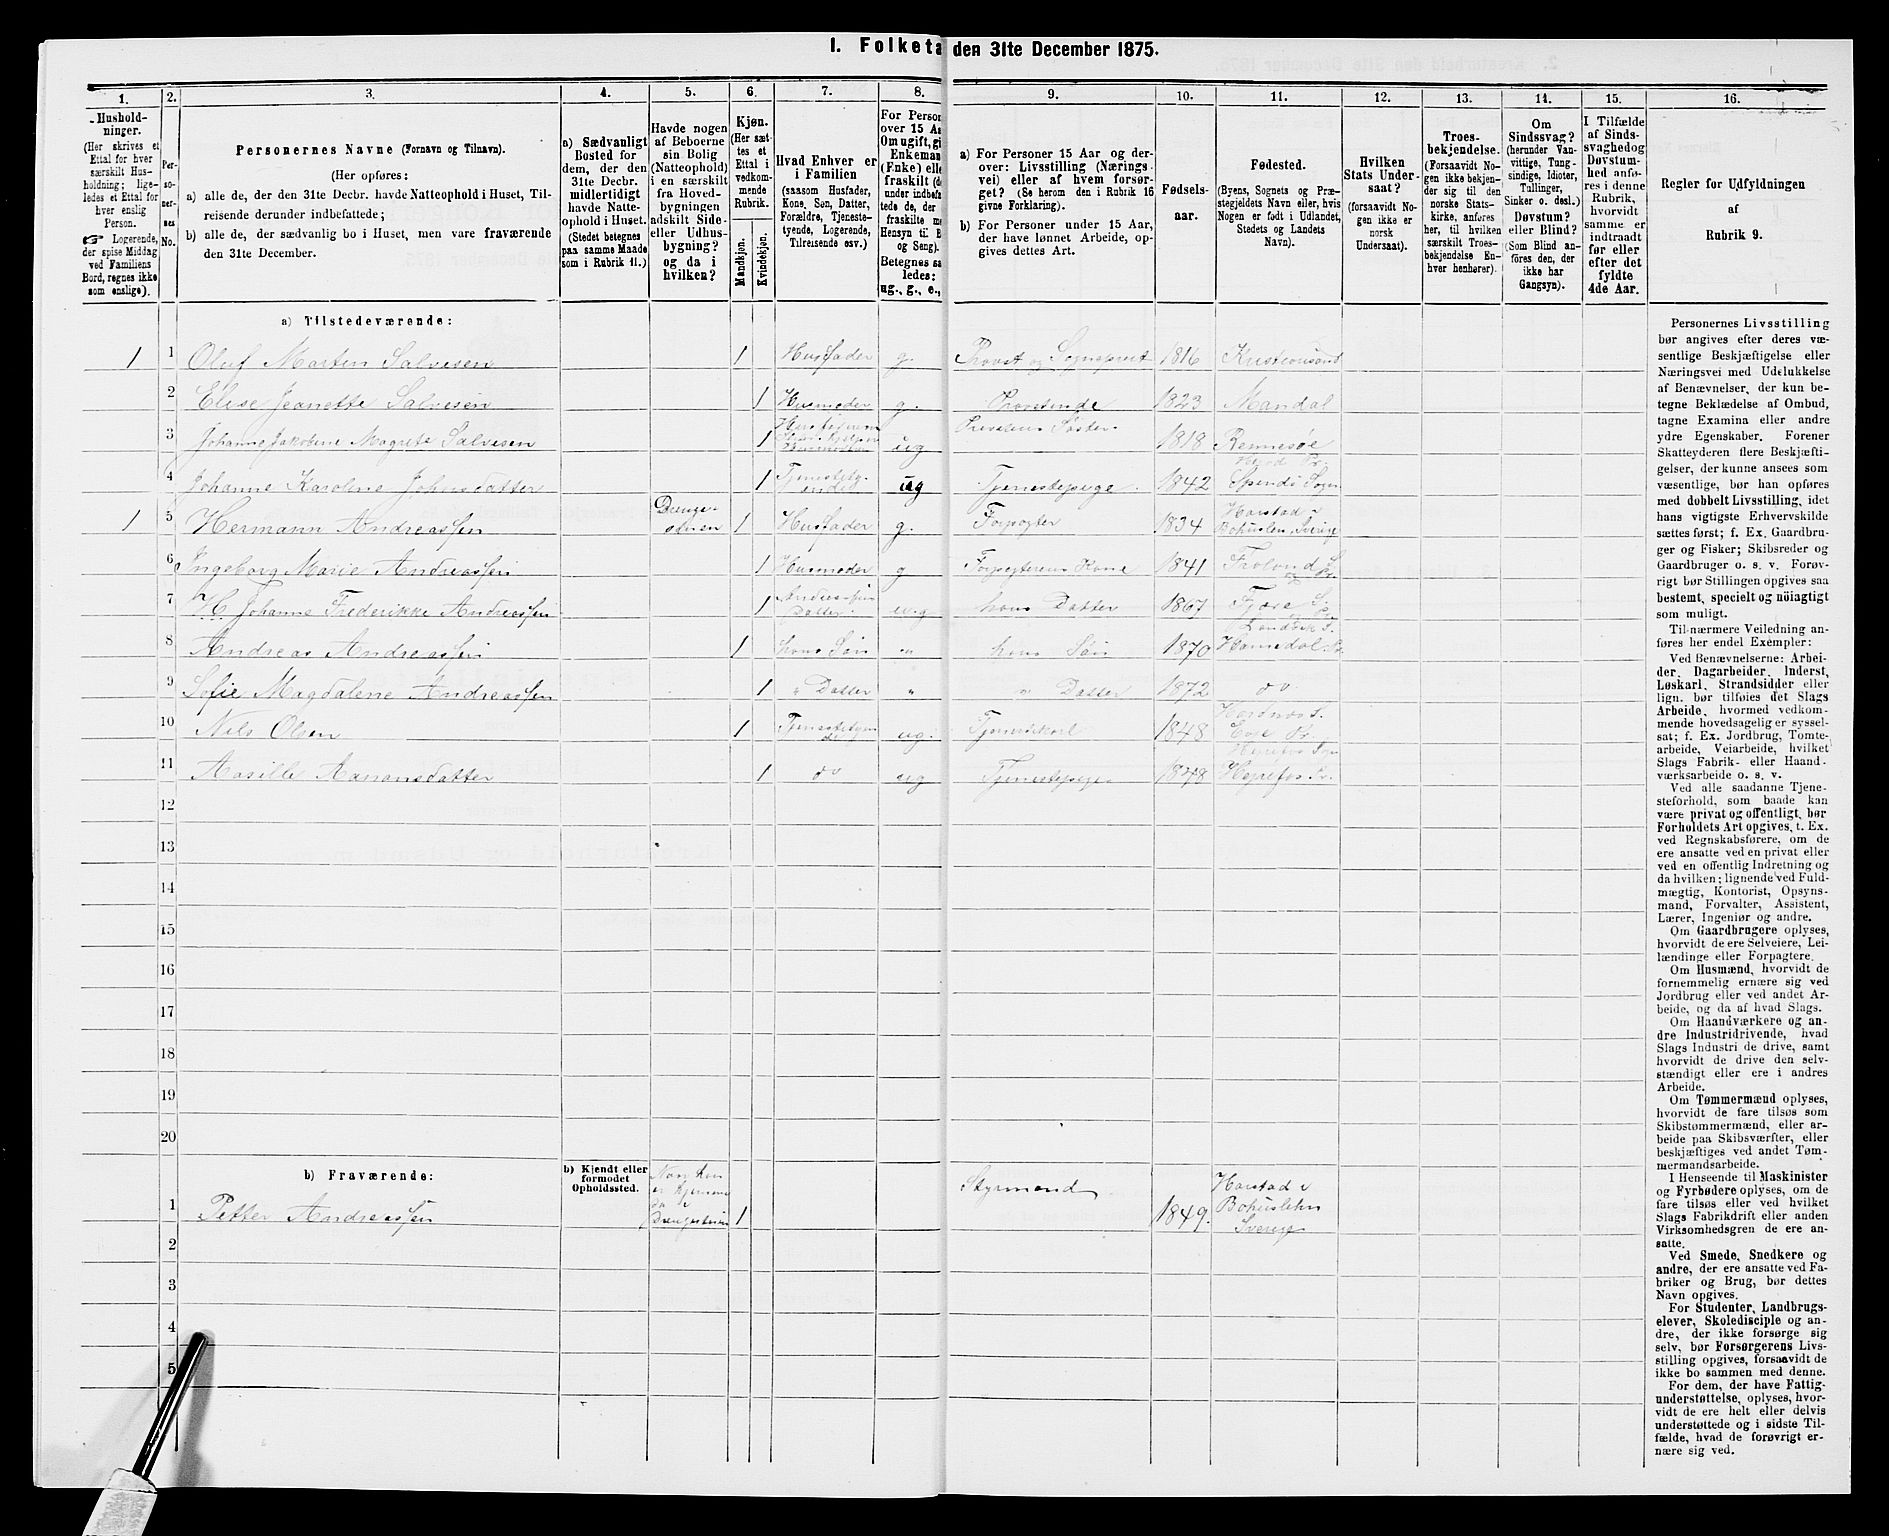 I. Folketa den 31te December 1875.
1.
2.
3.
4.
5.
6.
7.
8.
9.
10.
11.
12.
13.
14.
15.
16.
Hushold-
ninger.
(Her skrives et
Ettal for hver
særskilt Hus-
holdning; lige-
ledes et Ettal for
hver enslig
Person.
☞ Logerende,
der spise Middag
ved Familiens
Bord, regnes ikke
som enslige).
Per-
so-
ner-
nes
No.
Personernes Navne (Fornavn og Tilnavn).
(Her opføres:
a) alle de, der den 31te Decbr. havde Natteophold i Huset, Til-
reisende derunder indbefattede;
b) alle de, der sædvanlig bo i Huset, men vare fraværende
den 31te December.
a) Sædvanligt
Bosted for
dem, der den
31te Decbr.
midlertidigt
havde Natte-
ophold i Huset.
(Stedet betegnes
paa samme Maade
som i Rubrik 11.)
Havde nogen
af Beboerne
sin Bolig
(Natteophold)
i en særskilt
fra Hoved-
bygningen
adskilt Side-
eller Udhus-
bygning?
og da i
hvilken?
Kjøn.
(Her sæt-
tes et
Ettal i
vedkom-
mende
Rubrik.
Mandkjøn.
Kvindekjøn.
Hvad Enhver er
i Familien
(saasom Husfader,
Kone, Søn, Datter,
Forældre, Tjeneste-
tyende, Logerende,
Tilreisende osv.)
For Person
over 15 Aa
Om ugift, gi
Enkeman
(Enke) elle
fraskilt (d
under indbefa
tede de, der
fraskilte me
Hensyn til B
og Seng).
Betegnes sa
ledes:
ug., g., e.,
a) For Personer 15 Aar og der-
over: Livsstilling (Nærings-
vei) eller af hvem forsør-
get? (Se herom den i Rubrik 16
givne Forklaring).
b) For Personer under 15 Aar,
der have lønnet Arbeide, op-
gives dettes Art.
Fødsels-
aar.
Fødested.
(Byens, Sognets og Præ-
stegjeldets Navn eller, hvis
Nogen er født i Udlandet,
Stedets og Landets
Navn).
Hvilken
Stats Under-
saat?
(forsaavidt No-
gen ikke er
norsk
Undersaat).
Troes-
bekjendelse.
(Forsaavidt No-
gen ikke bekjen-
der sig til den
norske Stats-
kirke, anføres
her, til hvilken
særskilt Troes-
bekjendelse En-
hver henhører).
Om
Sindssvag?
(herunder Van-
vittige, Tung-
sindige, Idioter,
Tullinger,
Sinker o. desl.)
Døvstum?
eller Blind?
(Som Blind an-
føres den, der
ikke har
Gangsyn).
I Tilfælde
af Sinds-
svaghed og
Døvstum-
hed anfø-
res i denne
Rubrik,
hvorvidt
samme er
indtraadt
før eller
efter det
fyldte
4de Aar.
Regler for Udfyldningen
af
Rubrik 9.
a) Tilstedeværende:
1 1 Oluf Morten Salvesen 1 Husfader g. Provst og Sognepræst 1816 Kristiansand
2 Elise Jeanette Salvesen 1 Husmoder g. Provstinde 1823 Mandal
3 Johanne Jakobine Magrete Salvesen 1 ug Provstens Søster 1818 Rennesøe
4 Johanne Karoline Johnsdatter 1 ug Tjenestepige 1842 Sogn
1 5 Hermann Andreassen Drenge-
stuen 1 Husfader g. Forpagter 1834 Harstad i
Bohuslen, Sverige
6 Ingeborg Marie Andreassen 1 Husmoder g Forpagterens Kone 1841 Froland S.
7 H. Johanne Frederikke Andreassen 1 Datter ug hans Datter 1867 Fjære S.
8 Andreas Andreassen 1 hans Søn " hans Søn 1870
9 Sofie Magdalene Andreassen 1 " Datter " " Datter 1872 do
10 Nils Olsen 1 ug. Tjenestekarl 1848
11 Aasille Aanonsdatter 1 do ug Tjenestepige 1848
12
13
14
15
16
17
18
19
20
b) Fraværende:
b) Kjendt eller
formodet
Opholdssted.
1 Petter Andreassen Naar han
er hjemme
da i
Drengestuen 1 Styrmand 1849. Harstad i
Bohuslehn
Sverige
2
3
4
5
Personernes Livsstilling
bør angives efter deres væ-
sentlige Beskjæftigelse eller
Næringsvei med Udelukkelse
af Benævnelser, der kun be-
tegne Beklædelse af Ombud,
tagne Examina eller andre
ydre Egenskaber. Forener
Skatteyderen flere Beskjæfti-
gelser, der kunne ansees som
væsentlige, bør han opføres
med dobbelt Livsstilling, idet
hans vigtigste Erhvervskilde
sættes først; f. Ex. Gaardbru-
ger og Fisker; Skibsreder og
Gaardbruger o. s. v. Forøv-
rigt bør Stillingen opgives saa
bestemt, specielt og nøiagtigt
som muligt.
Til nærmere Veiledning an-
føres her endel Exempler:
Ved Benævnelserne: Arbei-
der, Dagarbeider, Inderst,
Løskarl, Strandsidder eller
lign. bør tilføies det Slags
Arbeide, hvormed vedkom-
mende hovedsagelig er syssel-
sat; f. Ex. Jordbrug, Tomte-
arbeide, Veiarbeide, hvilket
Slags Fabrik- eller Haand-
værksarbeide o. s. v.
Ved alle saadanne Tjene-
steforhold, som baade kan
være privat og offentligt, bør
Forholdets Art opgives, t. Ex.
ved Regnskabsførere, om de
ere ansatte ved en privat eller
ved en offentlig Indretning og
da hvilken; lignende ved Fuld-
mægtig, Kontorist, Opsyns-
mand, Forvalter, Assistent,
Lærer, Ingeniør og andre.
Om Gaardbrugere oplyses,
hvorvidt de ere Selveiere, Lei-
lændinge eller Forpagtere.
Om Husmænd, hvorvidt de
fornemmelig ernære sig ved
Jordbrug eller ved andet Ar-
beide, og da af hvad Slags.
Om Haandværkere og an-
dre Industridrivende, hvad
Slags Industri de drive, samt
hvorvidt de drive den selv-
stændigt eller ere i andres
Arbeide.
Om Tømmermænd oplyses,
hvorvidt de fare tilsøs som
Skibstømmermænd, eller ar-
beide paa Skibsværfter, eller
beskjæftiges ved andet Tøm-
mermandsarbeide.
I Henseende til Maskinister
og Fyrbødere oplyses, om de
fare tilsøs eller ved hvilket
Slags Fabrikdrift eller anden
Virksomhedsgren de ere an-
satte.
Ved Smede, Snedkere og
andre, der ere ansatte ved Fa-
briker og Brug, bør dettes
Navn opgives.
For Studenter, Landbrugs-
elever, Skoledisciple og an-
dre, der ikke forsørge sig
selv, bør Forsørgerens Livs-
stilling opgives, forsaavidt de
ikke bo sammen med denne.
For dem, der have Fattig-
understøttelse, oplyses, hvor-
vidt de ere helt eller delvis
understøttede og i sidste Til-
fælde, hvad de forøvrigt er-
nære sig ved.